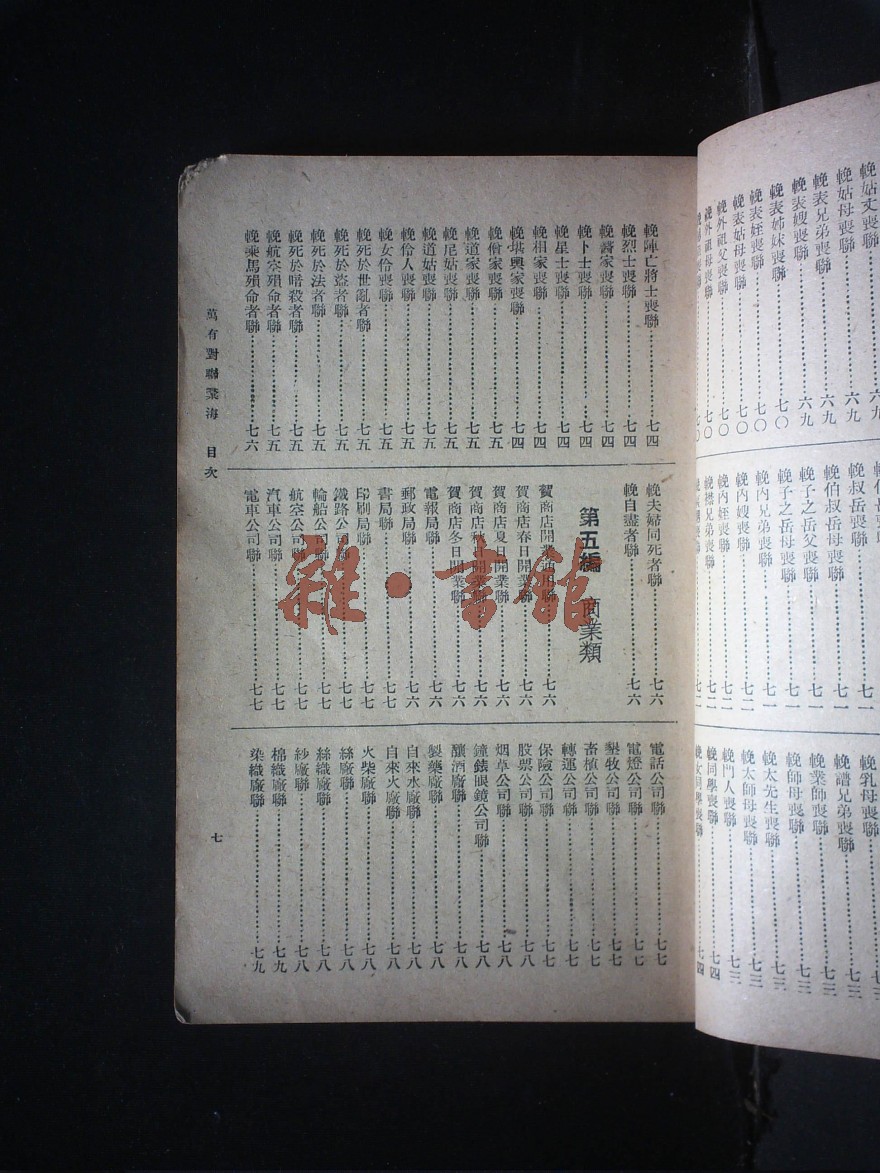 輓姑丈喪聯……六九
輓姑母喪聯……六九
輓表兄弟喪聯……六九
輓表嫂喪聯……六九
輓表姊妹喪聯……七〇
輓表姪喪聯……七〇
輓表姑母喪聯……七〇
輓外祖父喪聯……七〇
輓外祖母喪聯……七〇
輓叔岳喪聯……七一
輓伯叔岳母喪聯……七一
輓子之岳父喪聯……七一
輓子之岳母喪聯……七一
輓內兄弟喪聯……七一
輓內嫂喪聯……七一
輓內姪喪聯……七一
輓襟兄弟喪聯……七一
輓乳母喪聯……七三
輓譜兄弟喪聯……七三
輓業師喪聯……七三
輓師母喪聯……七三
輓太先生喪聯……七三
輓太師母喪聯……七三
輓門人喪聯……七三
輓同學喪聯……七四
輓女同學喪聯……七四
輓陣亡將士喪聯……七四
輓烈士喪聯……七四
輓醫家喪聯……七四
輓卜士喪聯……七四
輓星士喪聯……七四
輓相家喪聯……七四
輓堪輿家喪聯……七四
輓術家喪聯……七五
輓道家喪聯……七五
輓尼姑喪聯……七五
輓道姑喪聯……七五
輓伶人喪聯……七五
輓女伶喪聯……七五
輓死於世亂者聯……七五
輓死於盜者聯……七五
輓死於法者聯……七五
輓死於暗殺者聯……七五
輓航空殞命者聯……七五
輓乘馬殞命者聯……七六
輓夫婦同死者聯……七六
輓自盡者聯……七六
第五編 商業類
賀商店開業通用聯……七六
賀商店春日開業聯……七六
賀商店夏日開業聯……七六
賀商店秋日開業聯……七六
賀商店冬日開業聯……七六
電報局聯……七六
郵政局聯……七六
書局聯……七七
印刷局聯……七七
鐵路公司聯……七七
輪船公司聯……七七
航空公司聯……七七
汽車公司聯……七七
電車公司聯……七七
電話公司聯……七七
電燈公司聯……七七
墾牧公司聯……七七
畜植公司聯……七七
轉運公司聯……七七
保險公司聯……七七
股票公司聯……七八
烟草公司聯……七八
鐘錶眼鏡公司聯……七八
釀酒廠聯……七八
製藥廠聯……七八
自來水廠聯……七八
自來火廠聯……七八
火柴廠聯……七八
絲廠聯……七八
絲織廠聯……七八
紗廠聯……七八
棉織廠聯……七九
染織廠聯……七九
萬有對聯彙海 目次
七
雜·書館